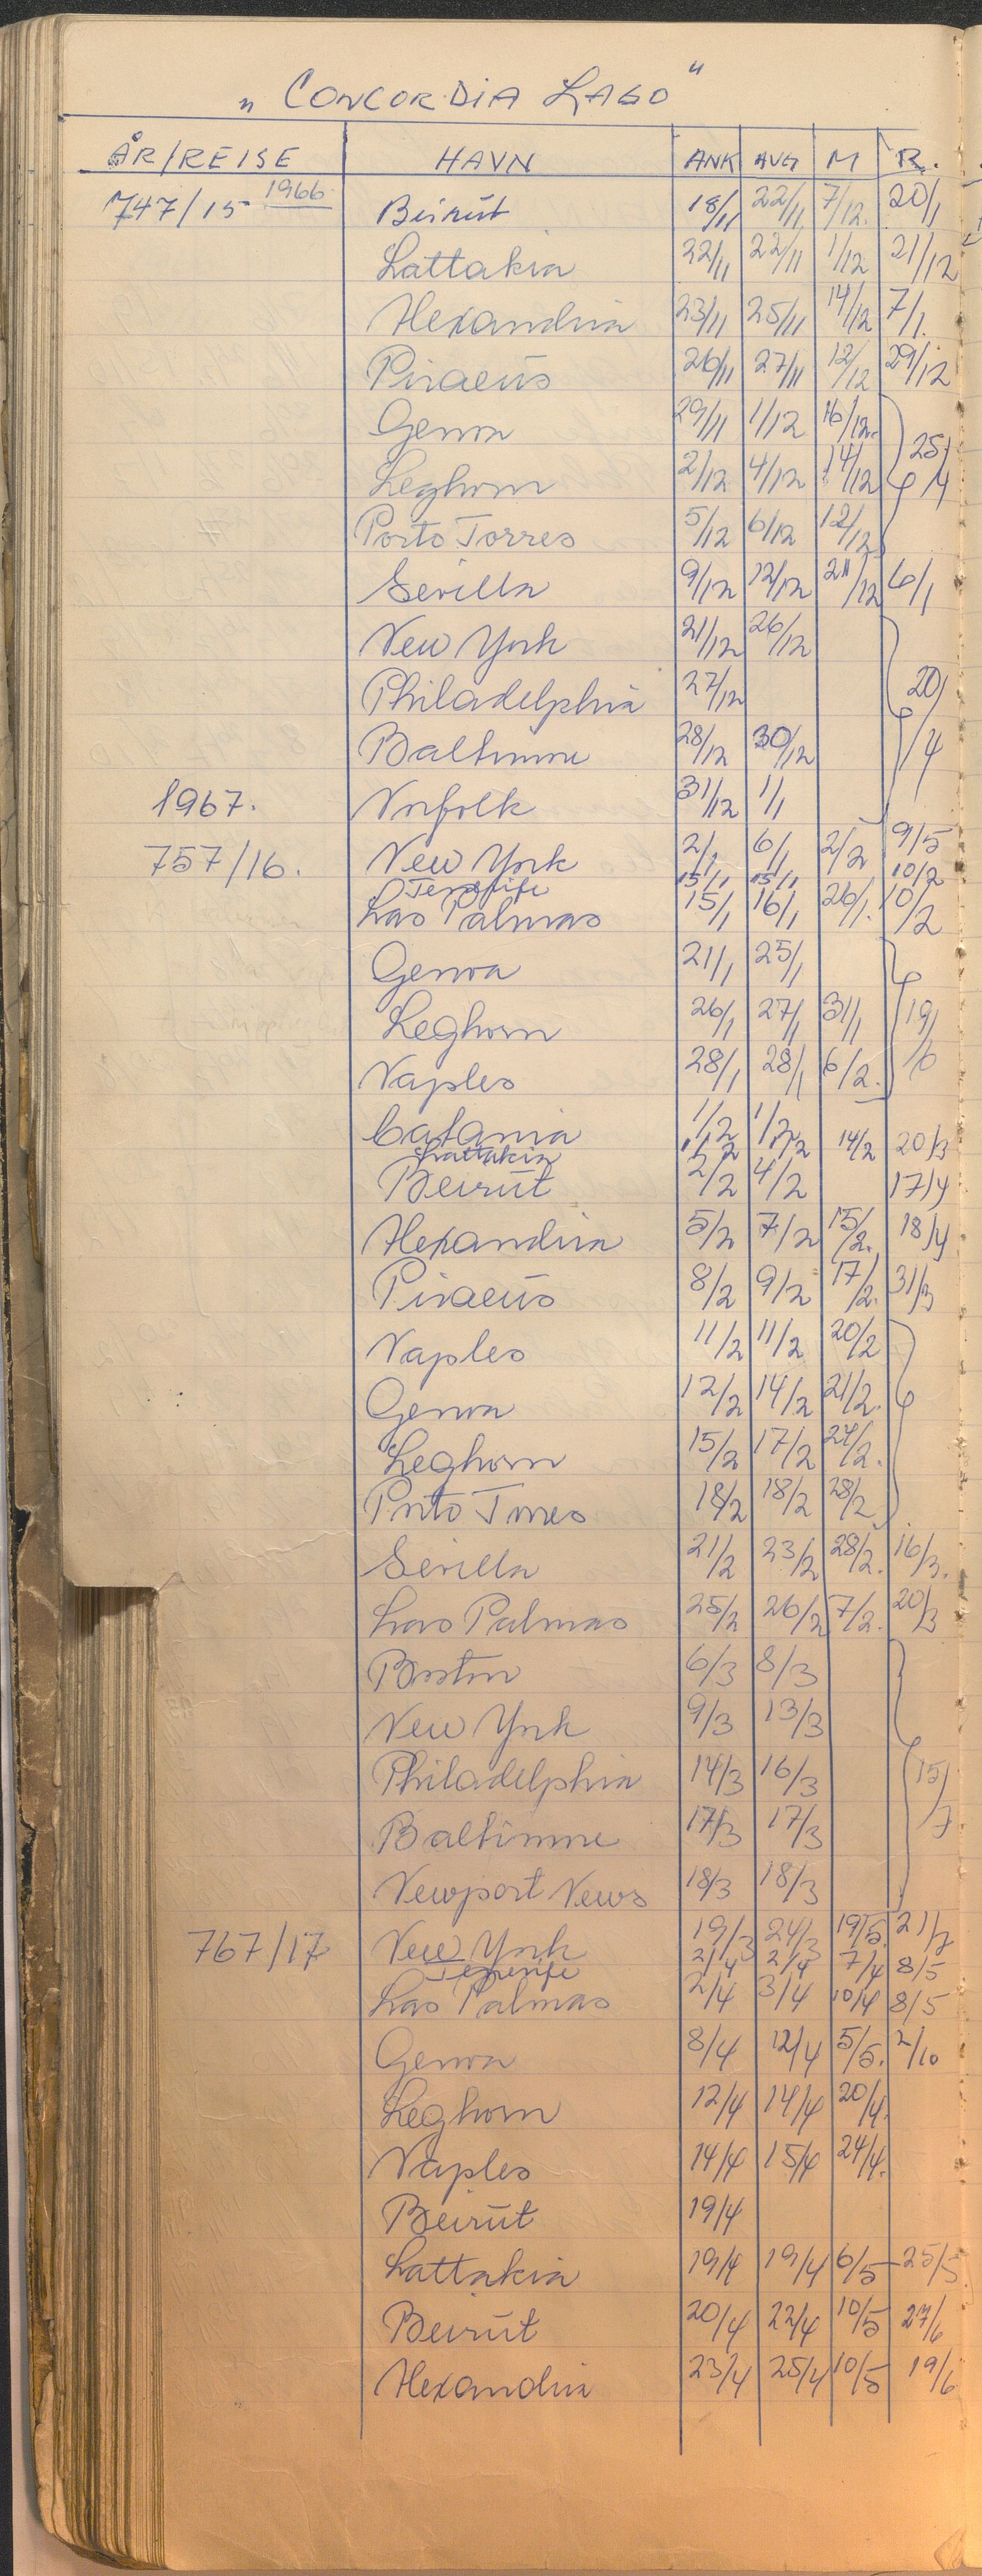 „ CONCORDIA LAGO "
ÅR/REISE HAVN ANK AVG M R.
747/15 1966 Beirut 18/11 22/11 7/12. 20/1
Lattakia 22/11 22/11 1/12 21/12
Alexandria 23/11 25/11 14/12 7/1.
Piraeus 26/11 27/11 12/12 29/12
Genoa 29/11 1/12 16/12.
Leghorn 2/12 4/12 14/12 25/4
Porto Torres 5/12 6/12 12/12
Sevilla 9/12 12/12 21/12 6/1
New York 21/12 26/12
Philadelphia 27/12 20/4
Baltimore 28/12 30/12
1967. Norfolk 31/12 1/1
757/16. New York 2/1 6/1 2/2 9/5
Tenerife 15/1 15/1 10/2
Las Palmas 15/1 16/1 26/1. 10/2
Genoa 21/1 25/1
Leghorn 26/1 27/1 31/1 19/6
Naples 28/1 28/1 6/2.
Catania 1/2 1/2 14/2 20/3
Lattakia
Beirut 2/2 4/2 17/4
Alexandria 5/2 7/2 15/2. 18/4
Piraeus 8/2 9/2 17/2. 31/3
Naples 11/2 11/2 20/2
Genoa 12/2 14/2 21/2.
Leghorn 15/2 17/2 24/2.
Porto Torres 18/2 18/2 28/2
Sevilla 21/2 23/2 28/2. 16/3.
Las Palmas 25/2 26/2 7/2. 20/3
Boston 6/3 8/3
New York 9/3 13/3
Philadelphia 14/3 16/3 15/7
Baltimore 17/3 17/3
Newport News 18/3 18/3
767/17 New York 19/3 24/3 19/5. 21/7
Tenerife 2/4 2/4 7/4 8/5
Las Palmas 2/4 3/4 10/4 8/5
Genoa 8/4 12/4 5/5. 2/10
Leghorn 12/4 14/4 20/4.
Naples 14/4 15/4 24/4.
Beirut 19/4
Lattakia 19/4 19/4 6/5 25/5
Beirut 20/4 22/4 10/5 27/6
Alexandria 23/4 25/4 10/5 19/6